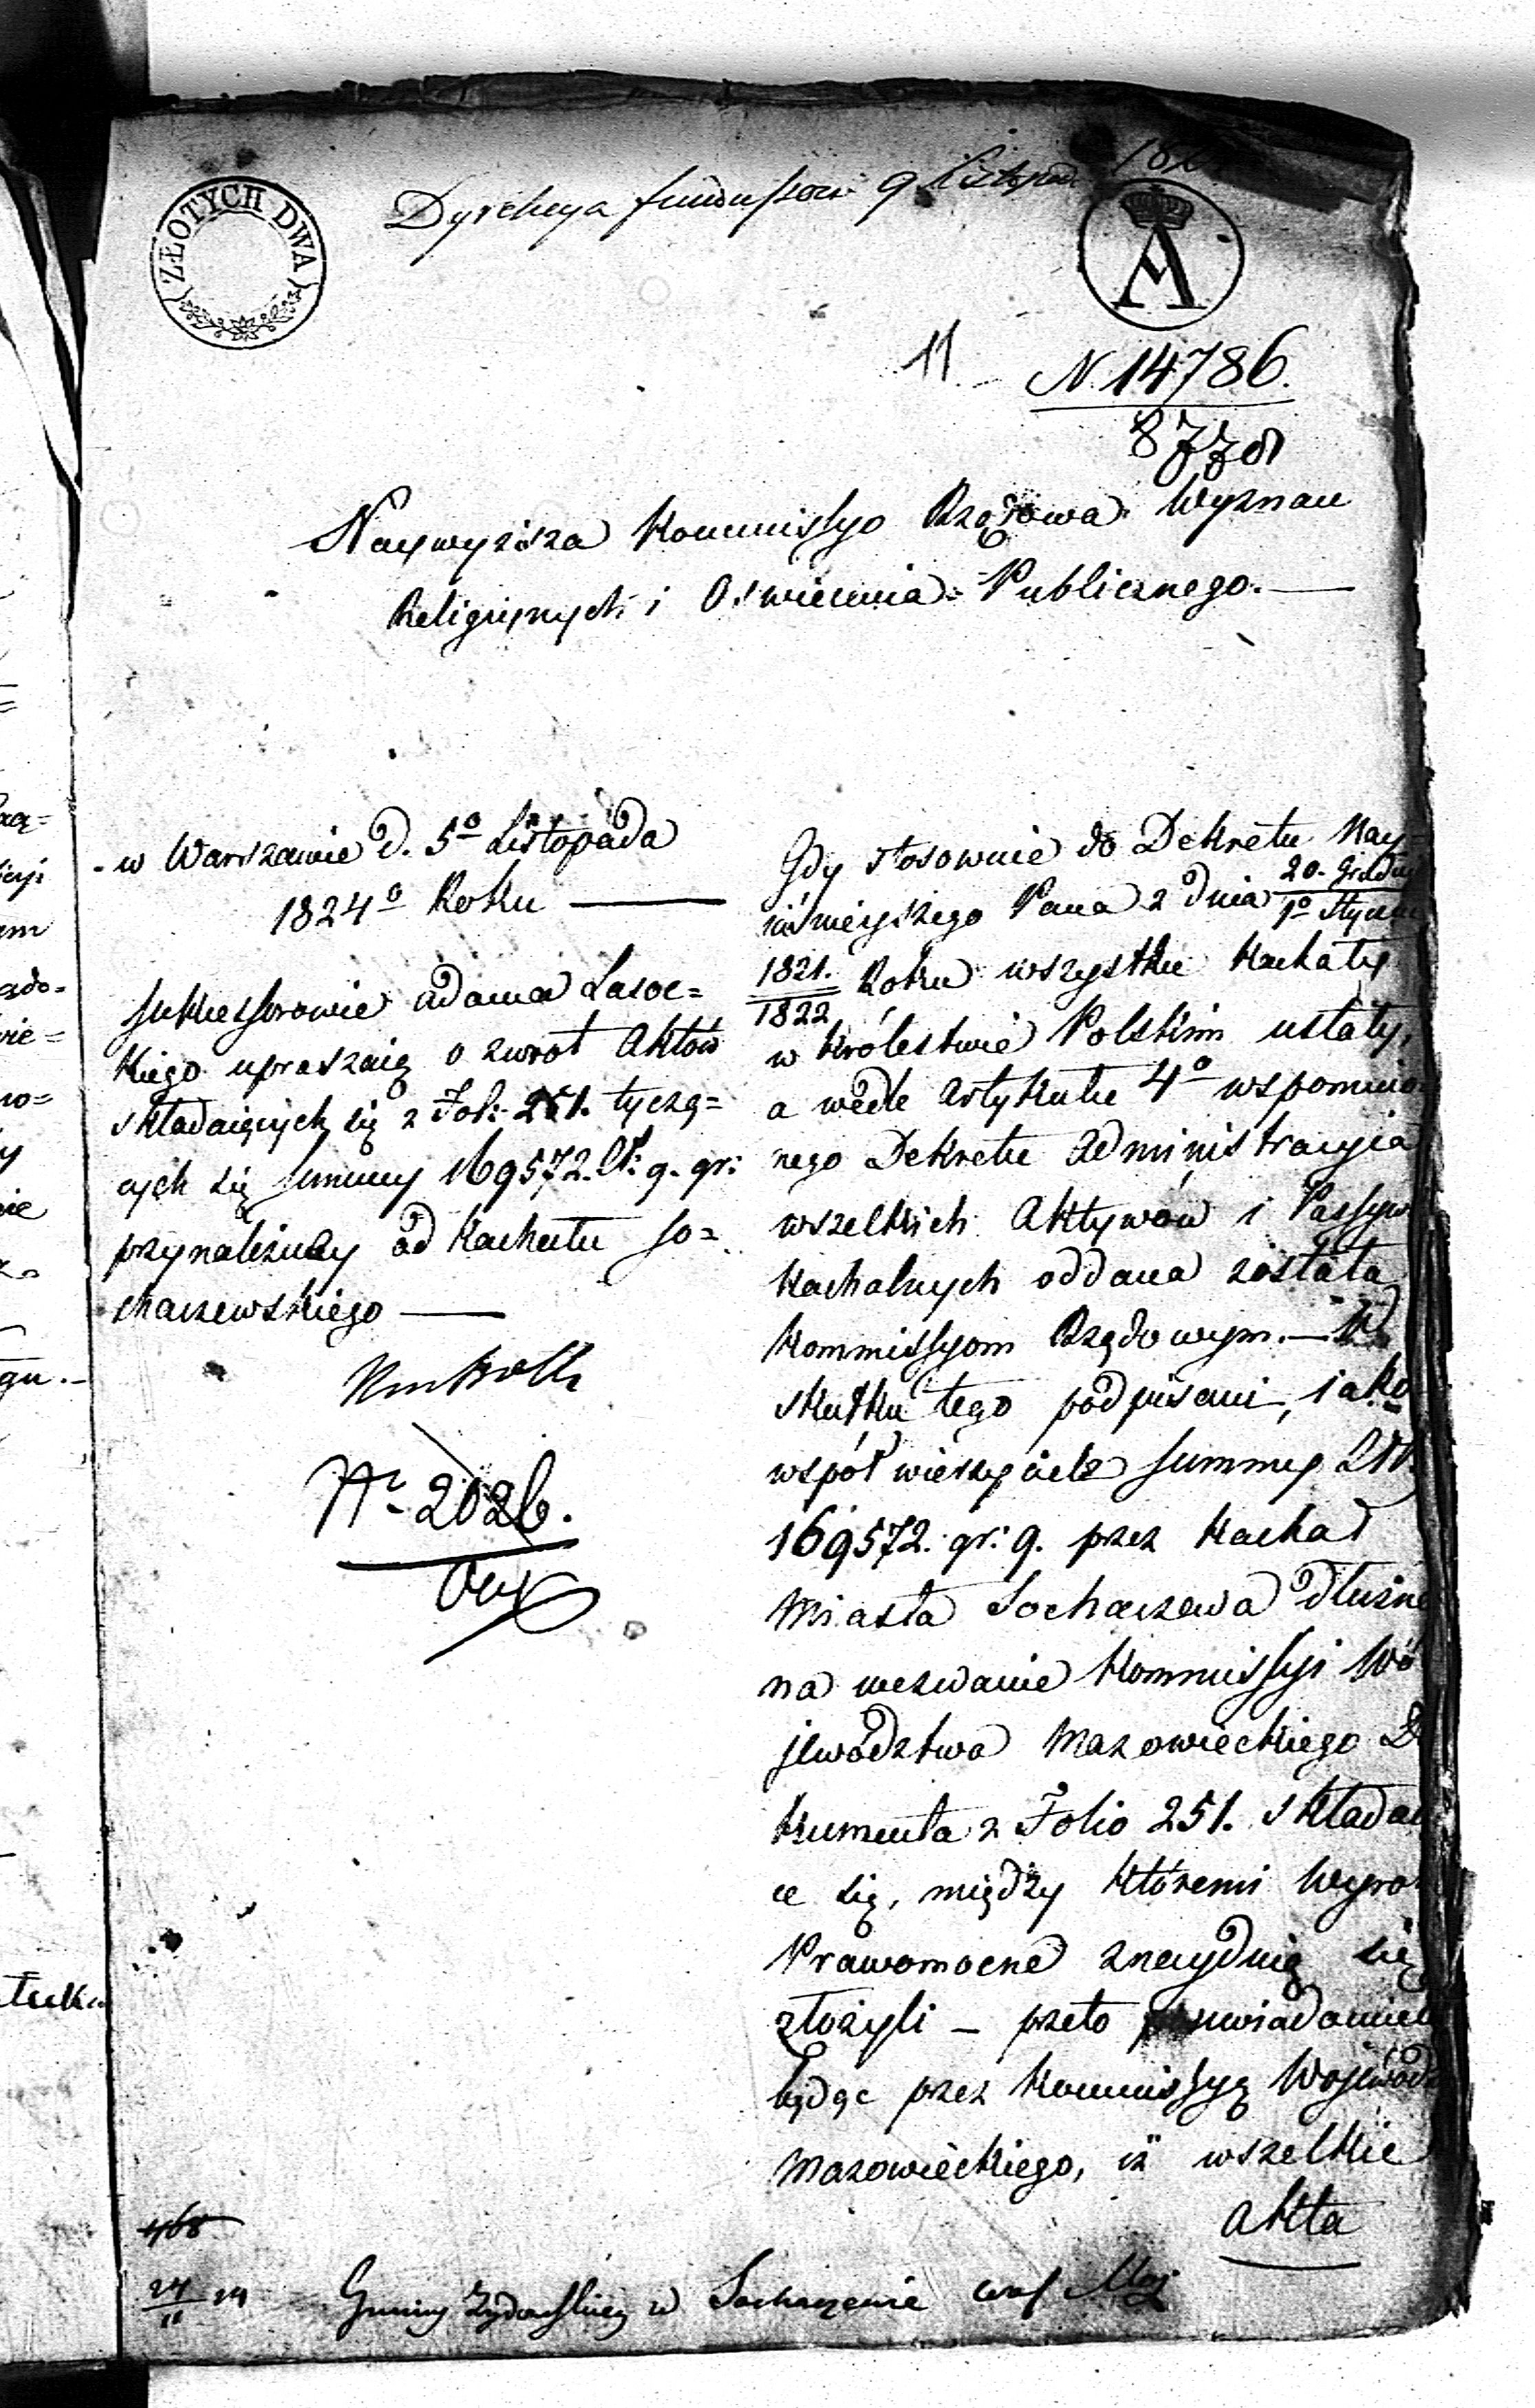 Dyrekcya funduszow 9 Listopada
ZŁOTYCH DWA
A
11.
N. 14786.
8778
Naywyższa Kommissyo Rządowa Wyznań
Religiynych i Oświecenia Publicznego.
w Warszawie D. 5º Listopada
1824º Roku
Sukcessorowie Adama Lasoc=
kiego upraszaią o zwrot Aktów
składaiących się z Fol: 251. tyczą=
cych się Summy 169572. Zł: 9. gr:
przynależney od Kachału So=
chaczewskiego
Nr 2026.
Gdy stosownie do Dekretu Nay=
iaśnieyszego Pana z dnia 20. Grudnia
1º Stycznia
1821.
1822 Roku wszystkie Kachały
w Królestwie Polskim ustały,
a wedle Artykułu 4º wspomnio
nego Dekretu Administracyia
wszelkich Aktywów i Passyw
Kachalnych oddana została
Kommissyom Rządowym. – W
skutku tego podpisani, iako
współ wierzyciele Summy Złt.
169572. gr: 9. przez Kachał
Miasta Sochaczewa dłużne
na wezwanie Kommissyi Wo
jewództwa Mazowieckiego Do
kumenta z Folio 251. składai
ce się, między któremi Wyro
Prawomocne znayduią się
złożyli – przeto uwiadomieni
będąc przez Kommissyą Wojewódz
Mazowieckiego, iż wszelkie
Akta
468
24
11 24 Gminy Żydowskiey w Sochaczewie Maz